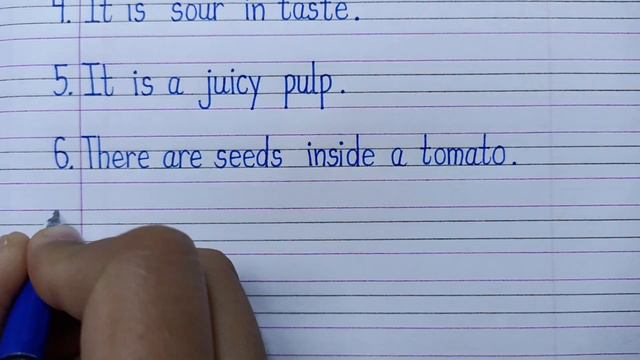 4. It is sour in taste.
5. It is a juicy pulp.
6. There are seeds inside a tomato.